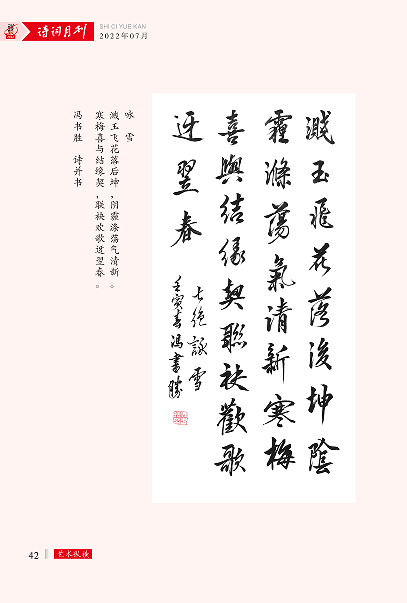 诗词月刊
SHI CI YUE KAN
2022年07月
咏 雪
溅玉飞花落后坤，阴霾涤荡气清新。
寒梅喜与结缘契，联袂欢歌迓翌春。
冯书胜 诗并书
溅玉飛花落後坤陰
霾滌蕩氣清新寒梅
喜與结缘契聯袂歡歌
迓翌春
七绝詠雪
壬寅春馮書勝
42
艺术纵横